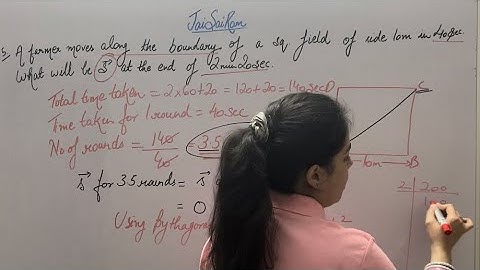 JaiSaiRam
5. A farmer moves along the boundary of a sq. field of side 10m in 40sec.
What will be S⃗ at the end of 2min20sec.
Total time taken = 2x60+20 = 120+20 = 140sec
Time taken for 1 round = 40sec
No of rounds = 140/40 = 3.5
S⃗ for 3.5 rounds = S⃗
= 0
Using Pythagoras
D
C
10m
B
2
2 | 200